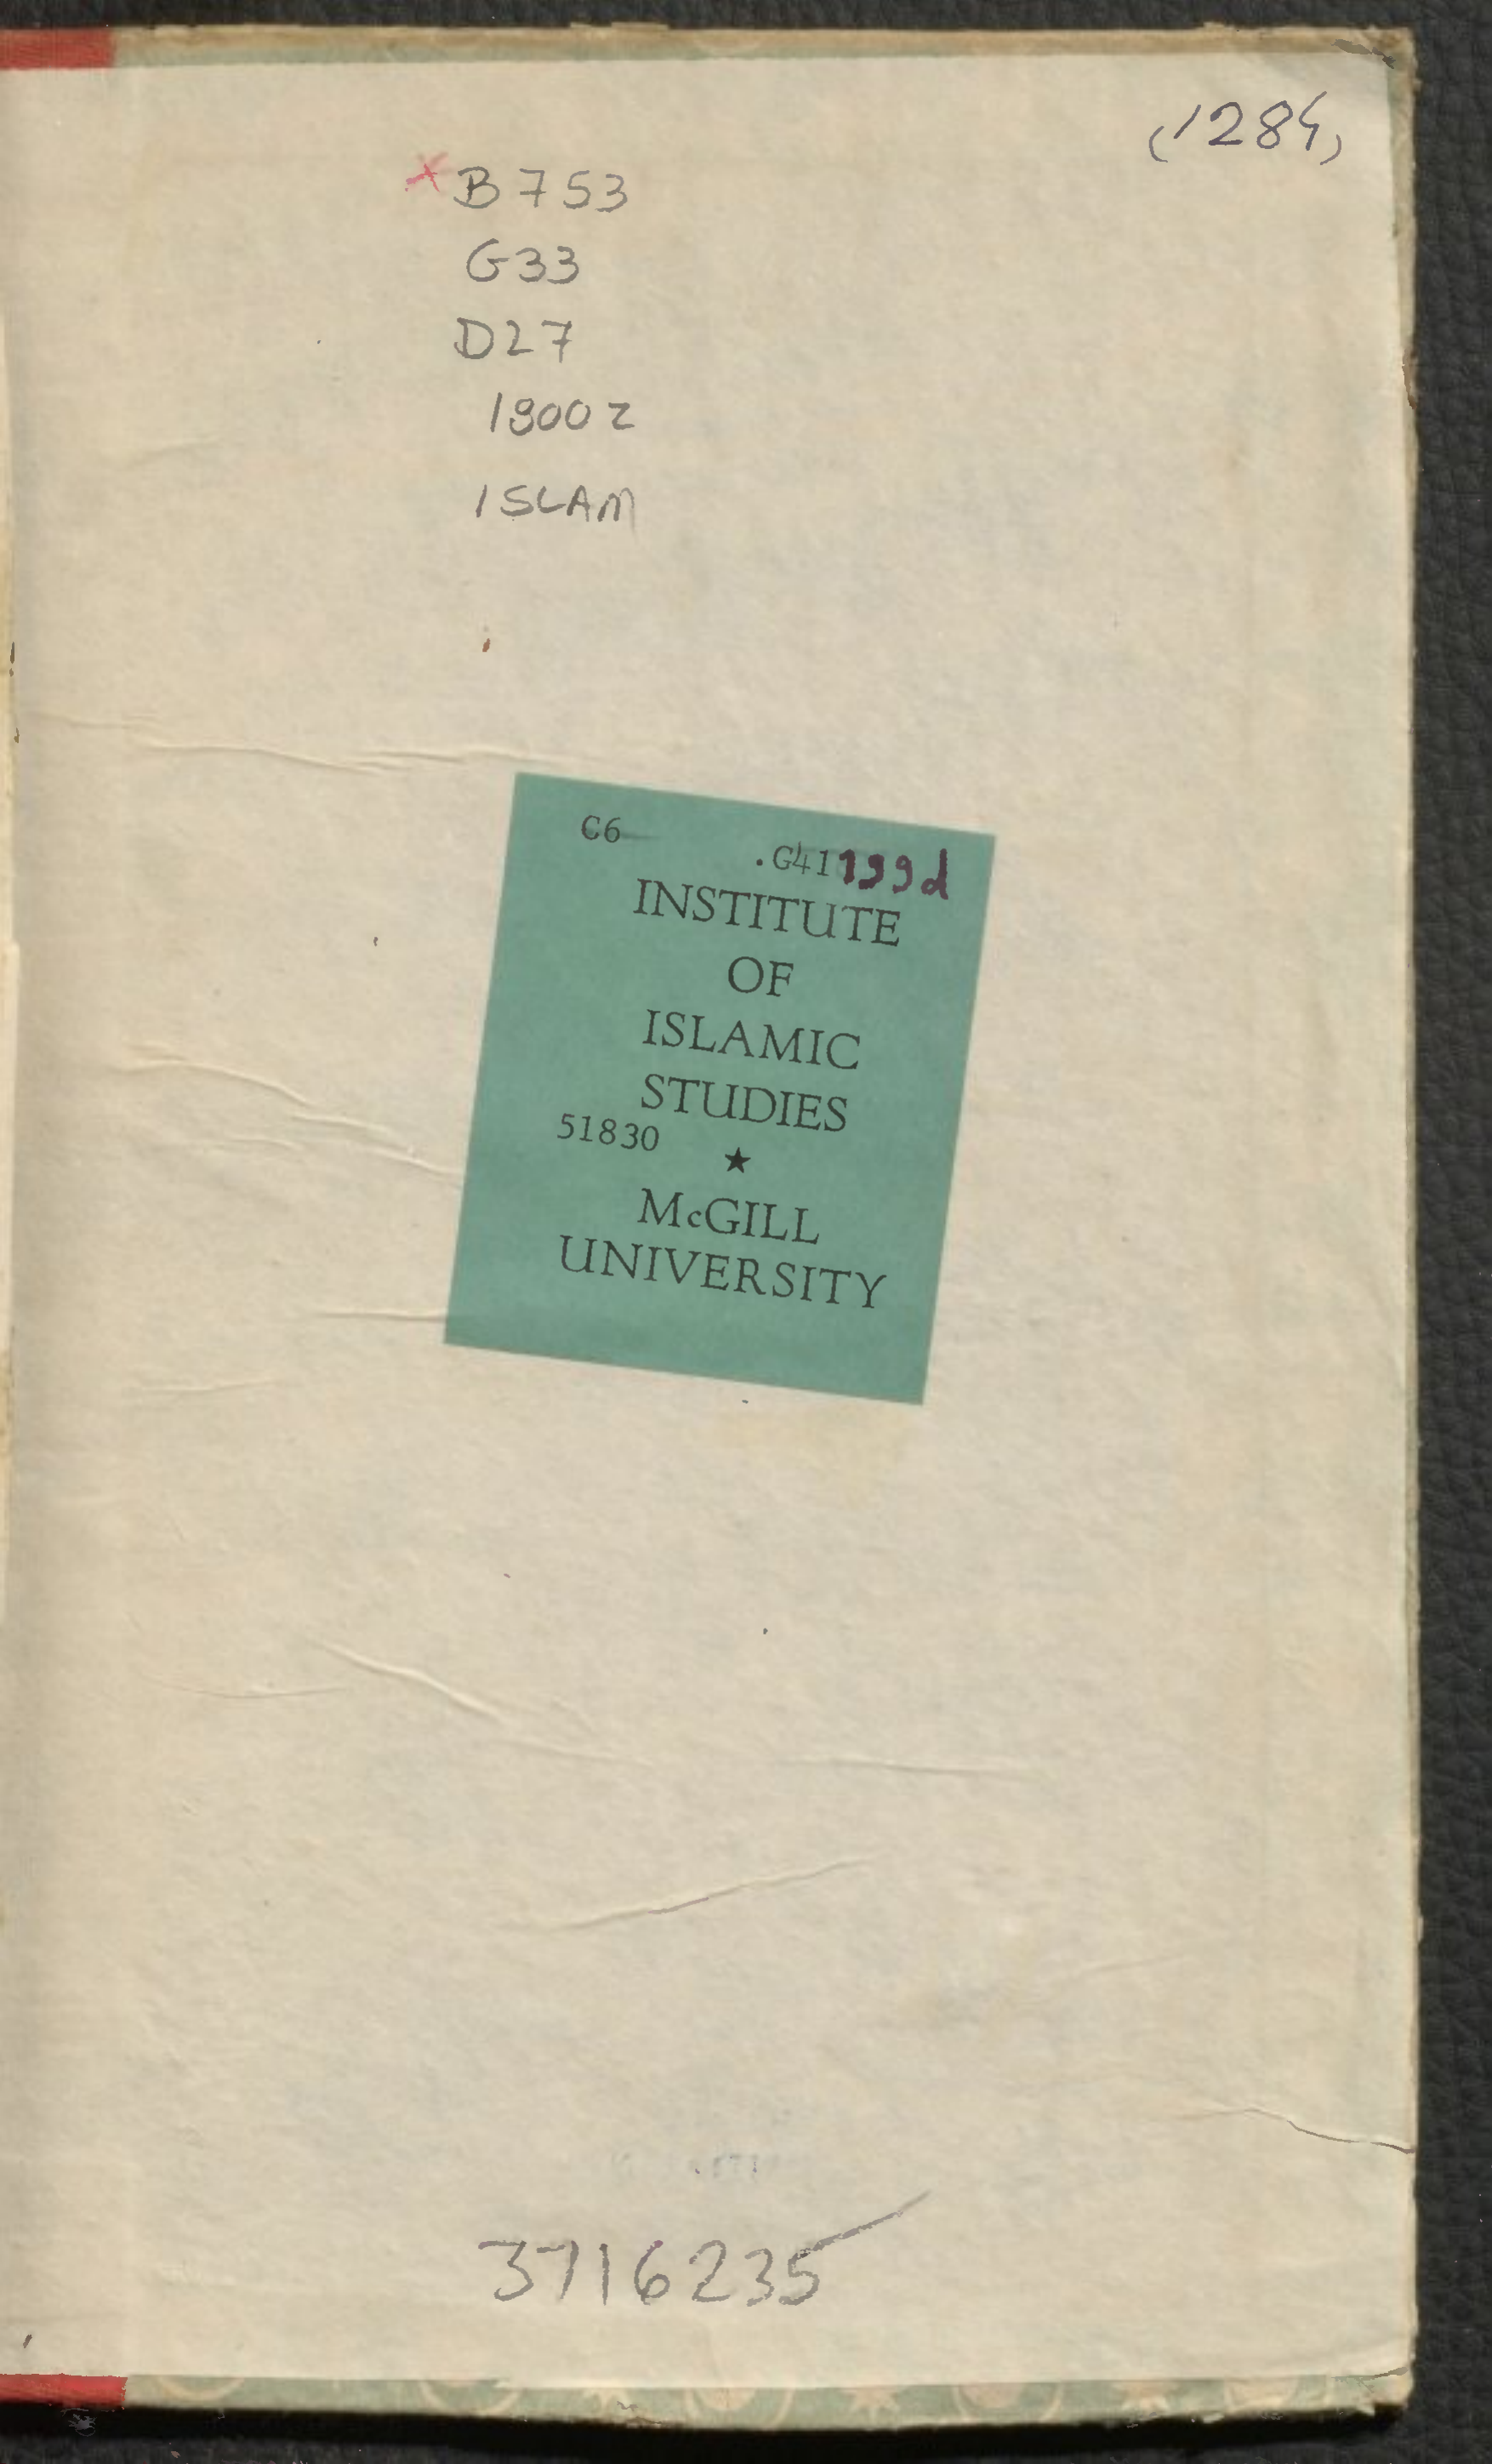 (1284)
B753
G33
D27
1900z
ISLAM
C6
.G41199d
INSTITUTE
OF
ISLAMIC
STUDIES
51830
★
McGILL
UNIVERSITY
3716235